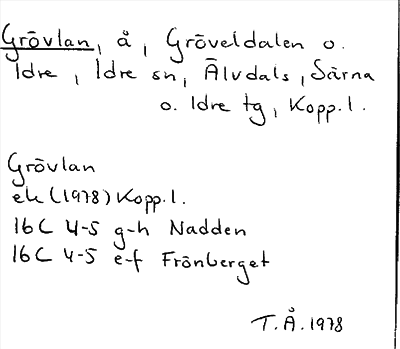 Grövlan, å, Gröveldalen o.
Idre, Idre sn, Älvdals, Särna
o. Idre tg, Kopp.l.
Grövlan
ek (1978) Kopp.l.
16C 4-5 g-h Nadden
16C 4-5 e-f Frönberget
T.Å. 1978